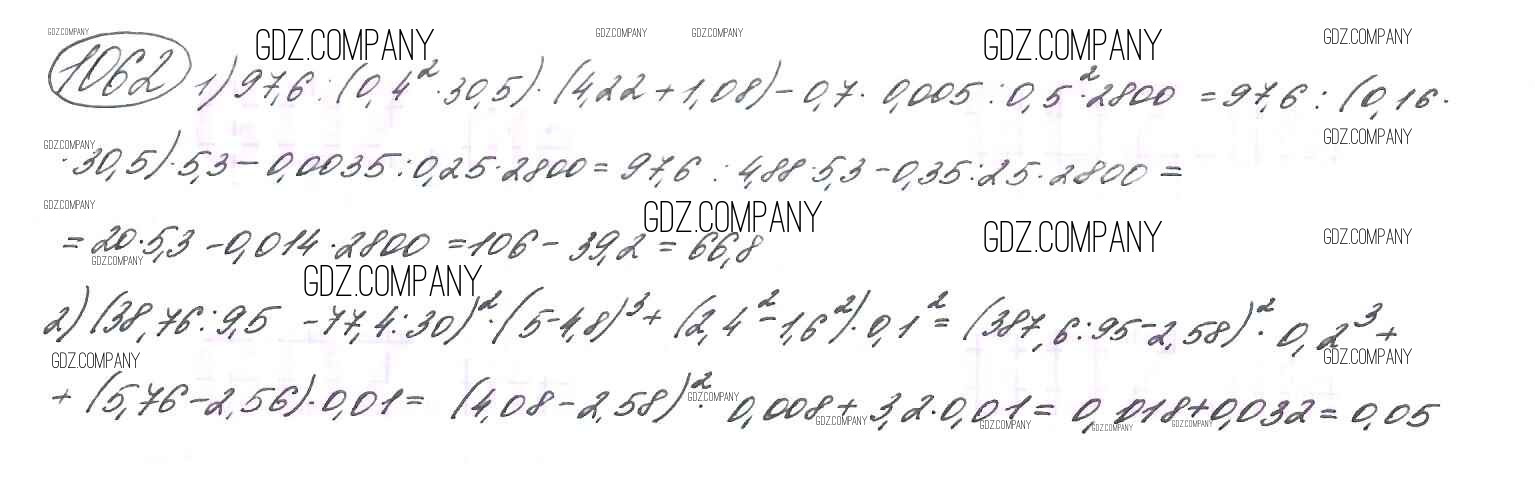 GDZ.COMPANY GDZ.COMPANY GDZ.COMPANY GDZ.COMPANY GDZ.COMPANY GDZ.COMPANY
1062 1) 97,6 : (0,4² · 30,5) · (4,22 + 1,08) - 0,7 · 0,005 : 0,5² · 2800 = 97,6 : (0,16 ·
GDZ.COMPANY GDZ.COMPANY
· 30,5) · 5,3 - 0,0035 : 0,25 · 2800 = 97,6 : 4,88 · 5,3 - 0,35 : 25 · 2800 =
GDZ.COMPANY GDZ.COMPANY GDZ.COMPANY GDZ.COMPANY
= 20 · 5,3 - 0,014 · 2800 = 106 - 39,2 = 66,8
GDZ.COMPANY GDZ.COMPANY
2) (38,76 : 9,5 - 77,4 : 30)² · (5 - 4,8)³ + (2,4² - 1,6²) · 0,1² = (387,6 : 95 - 2,58)² · 0,2³ +
GDZ.COMPANY GDZ.COMPANY
+ (5,76 - 2,56) · 0,01 = (4,08 - 2,58)² · 0,008 + 3,2 · 0,01 = 0,018 + 0,032 = 0,05
GDZ.COMPANY GDZ.COMPANY GDZ.COMPANY GDZ.COMPANY GDZ.COMPANY